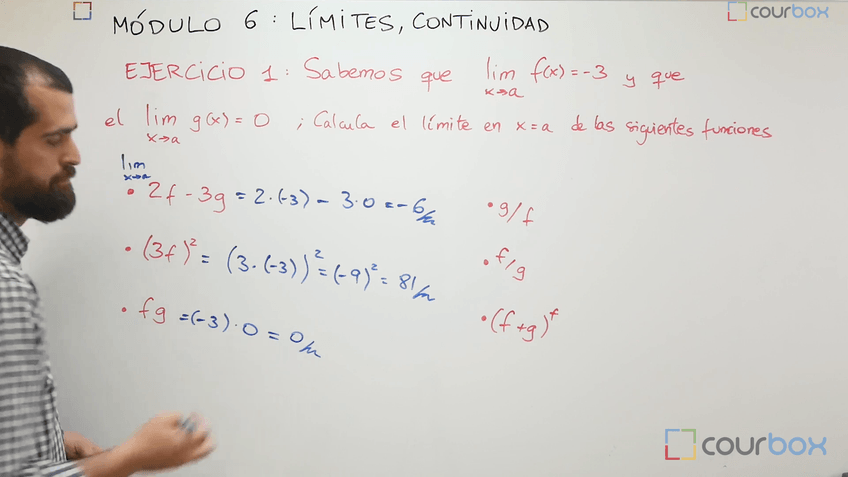 MÓDULO 6 : LÍMITES, CONTINUIDAD
courbox
EJERCICIO 1 : Sabemos que lim x→a f(x) = -3 y que
el lim x→a g(x) = 0 ; Calcula el límite en x = a de las siguientes funciones
lim x→a
• 2f - 3g = 2·(-3) - 3·0 = -6
• g/f
• (3f)² = (3·(-3))² = (-9)² = 81
• f/g
• fg = (-3)·0 = 0
• (f+g)^f
courbox